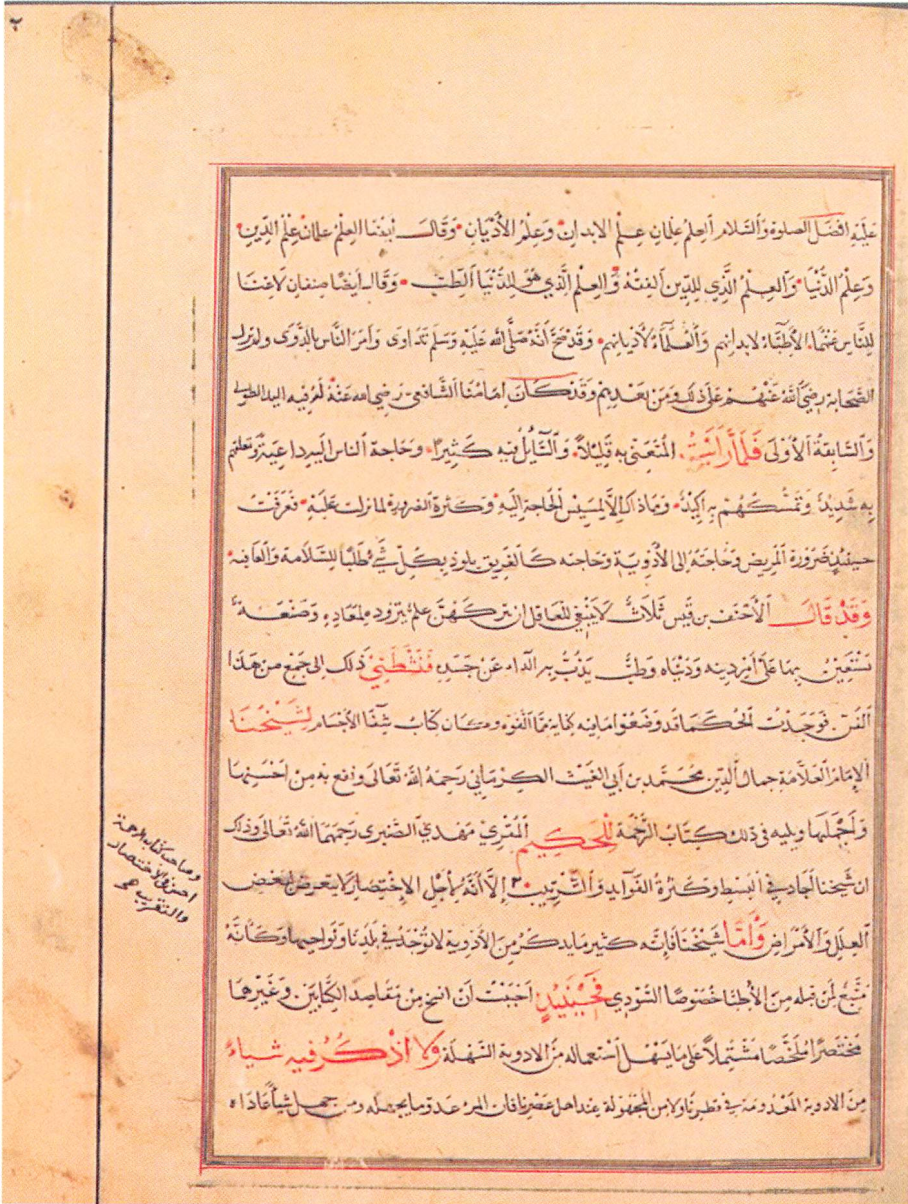 ٢
عليه افضل الصلوة والسلام العلم علمان علم الابدان وعلم الأديان وقال ايضا العلم علمان علم الدين
وعلم الدنيا والعلم الذي للدين الفقه والعلم الذي هو للدنيا الطب وقال ايضا صنفان لاغنا
للناس عنهما الأطباء لابدانهم والعلماء لأديانهم وقد صح أنه صلى الله عليه وسلم تداوى وأمر الناس بالدوى ولم تزل
الصحابة رضي الله عنهم على ذلك ومن بعدهم وقد كان امامنا الشافعي رضي الله عنه له فيه اليد الطولى
والسابقة الأولى فلما رأيت المعتني به قليلاً والسائل فيه كثيرا وحاجة الناس اليه داعية وتعلقهم
به شديدا وتمسكهم به اكيدا وماذاك إلا لمسيس الحاجة اليه وكثرة الضرورة لما نزلت عليه فعرفت
حينئذ ضرورة المريض وحاجته إلى الأدوية وحاجته كالغريق يلوذ بكل شيء طلبا للسلامة والعافيه
وقد قال الأحنف بن قيس ثلاث لا ينبغي للعاقل ان يتركهن علم يتزود لمعاده وصنعة
تستعين بها على أمر دينه ودنياه وطب يذب به الداء عن جسده فنشطني ذلك الى جمع من هذا
الفن فوجدت الحكما قد وضعوا مافيه كفاية القوه وكان كتاب شفا الأجسام لشيخنا
الإمام العلامة جمال الدين محمد بن أبي الغيث الكرماني رحمه الله تعالى ونفع به من احسنها
وأجملها ويليه في ذلك كتاب الرحمة للحكيم المقري مهدي الصنبرى رحمهما الله تعالى وذلك
ان شيخنا أجاد في البسط وكثرة الفوايد والترتيب إلا أنه لأجل الإختصار لا يتعرض لبعض
العلل والأمراض وأما شيخنا فإنه كثير مايذكر من الأدوية لا توجد في بلدنا ونواحيها وكأنه
متبع لمن قبله من الأطبا خصوصا السويدي فحينئذ احببت أن انسخ من مقاصد الكتابين وغيرهما
مختصرا ملخصا مشتملاً على مايسهل استعماله من الادوية السهلة ولا اذكر فيه شياء
من الادوية المعدومة في قطرنا ولا من المجهولة عند اهل عصرنا فان المرء عدو ما يجهله ومن جهل شيأ عاداه
وصاحب كتاب الرحمة
احسن في الاختصار
والتقريب صح